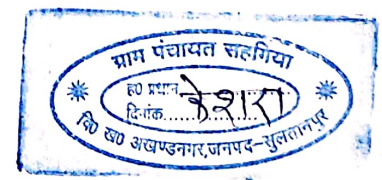 ग्राम पंचायत सहगिया
ह0 प्रधान केशरा
दिनांक..................
वि0 ख0 अखण्डनगर,जनपद-सुलतानपुर